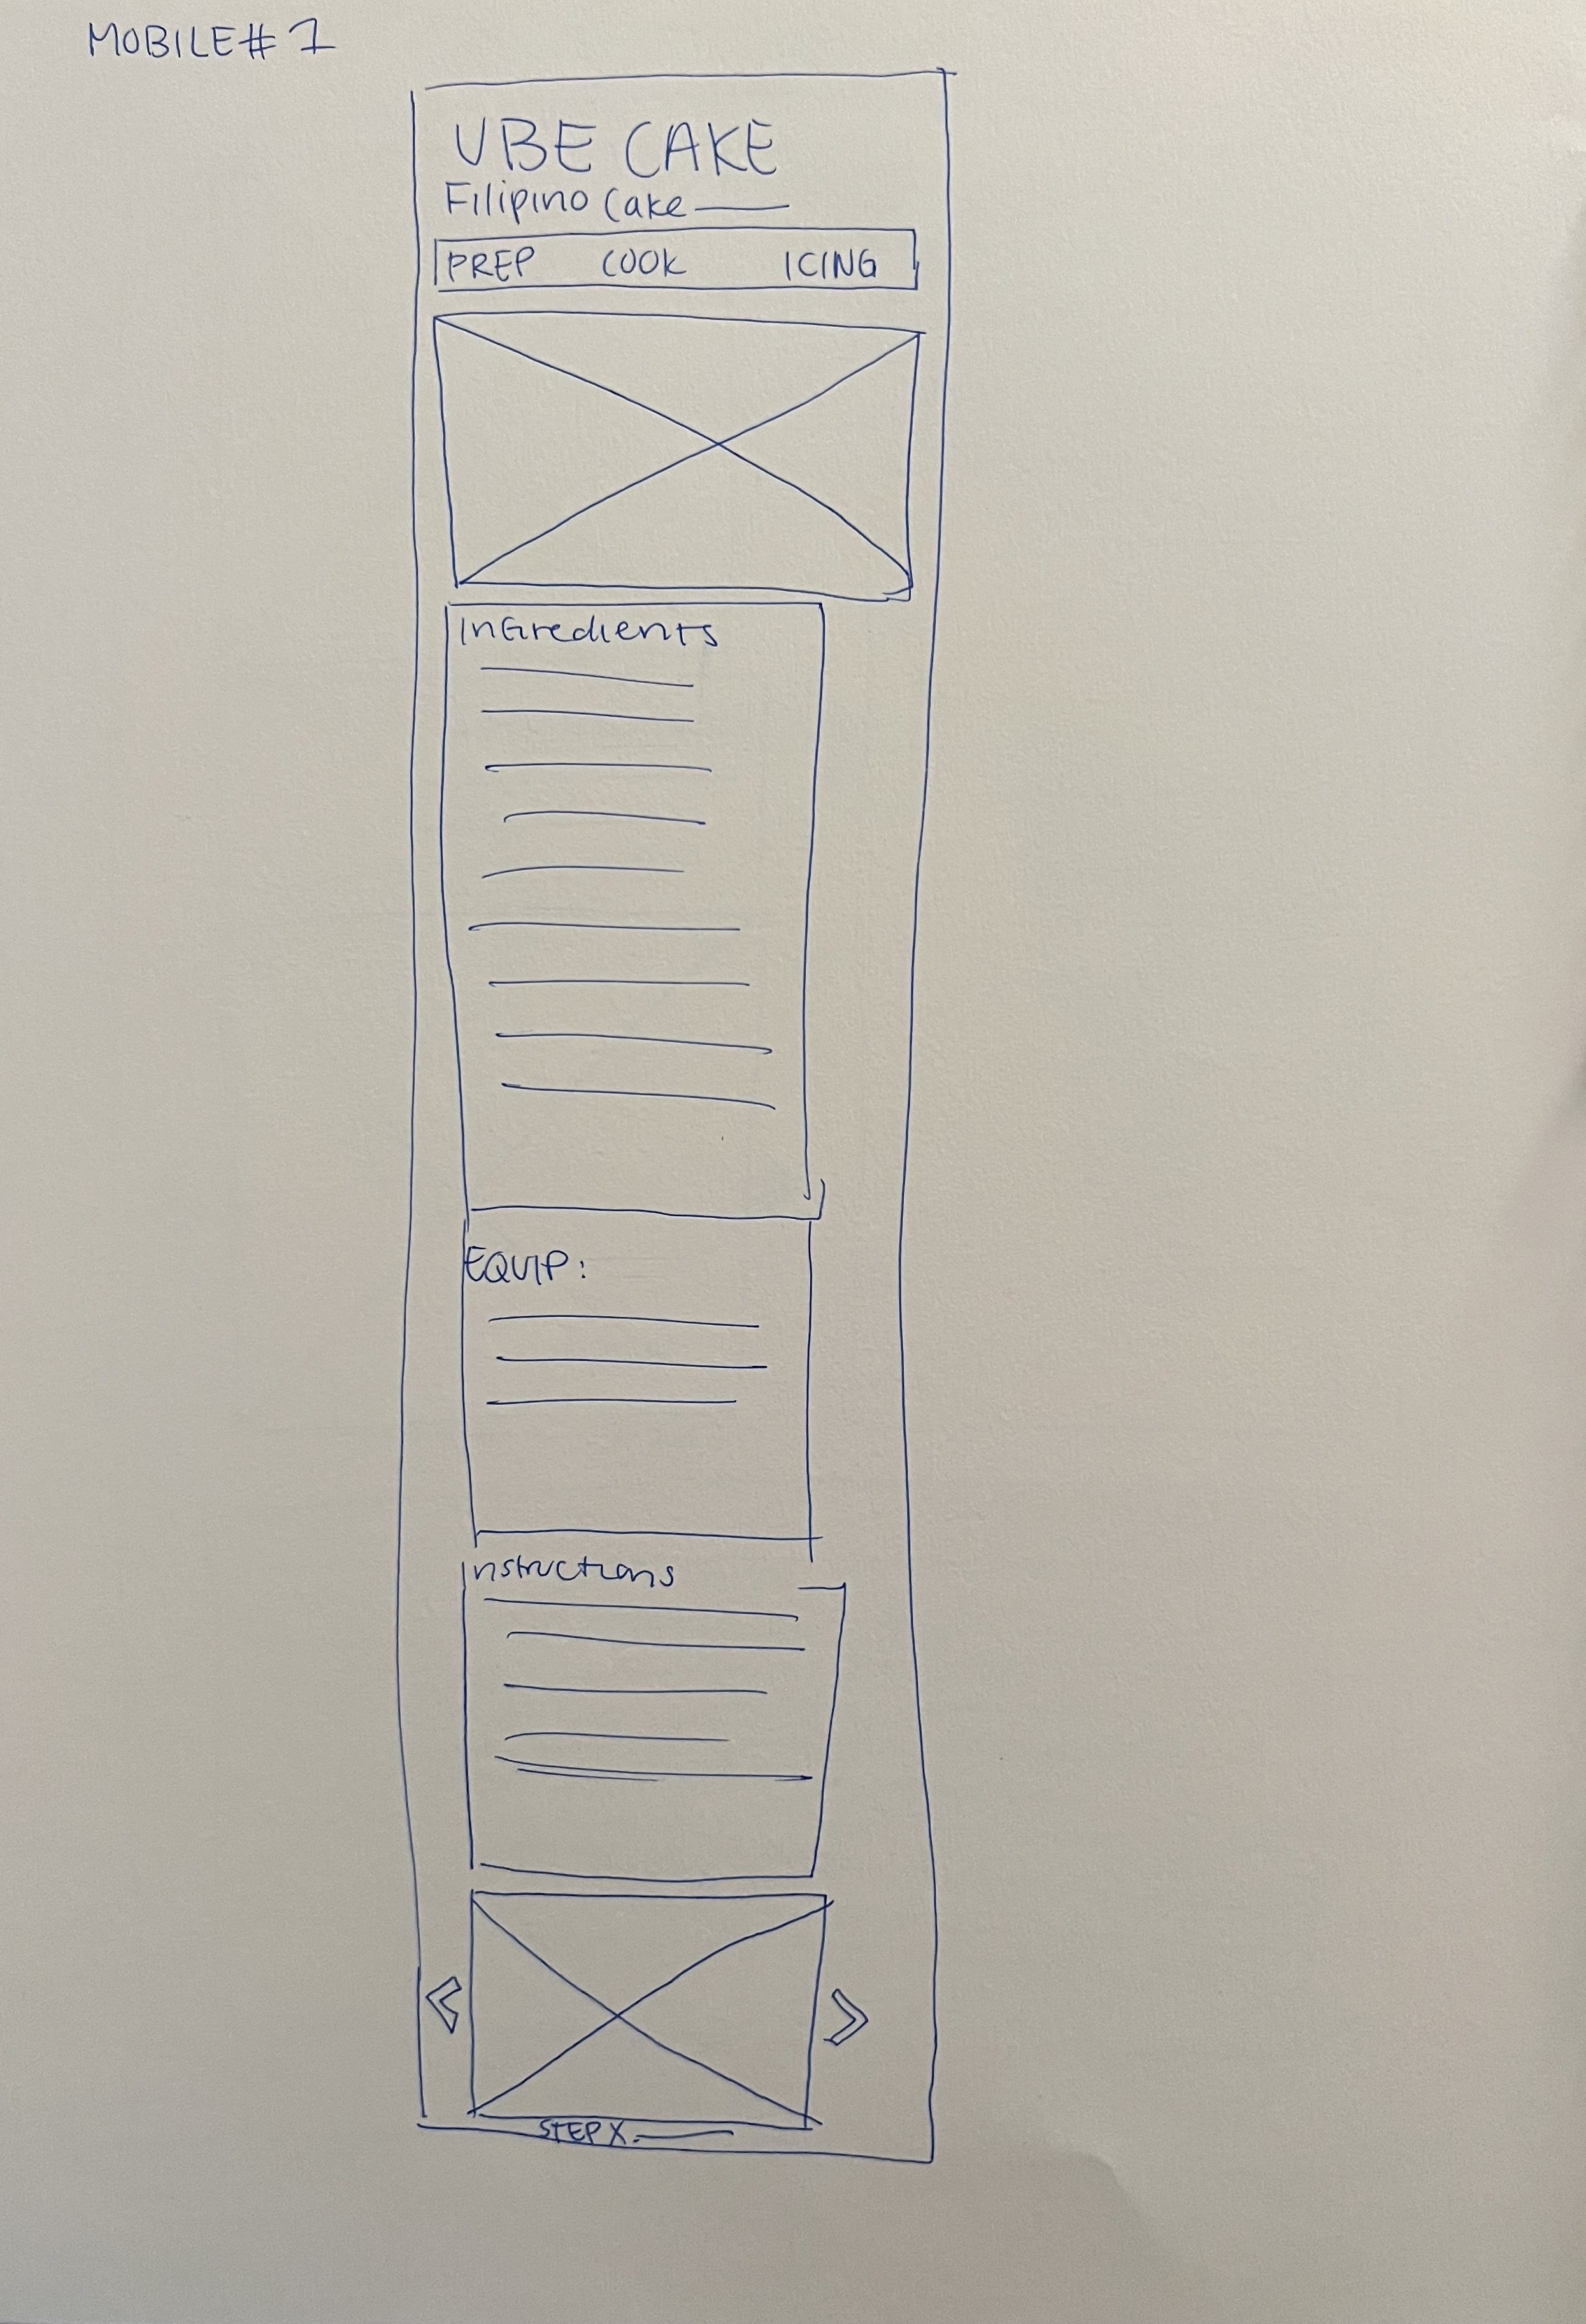 MOBILE# 1
UBE CAKE
Filipino Cake
PREP COOK ICING
InGredients
EQUIP:
Instructions
STEP X.